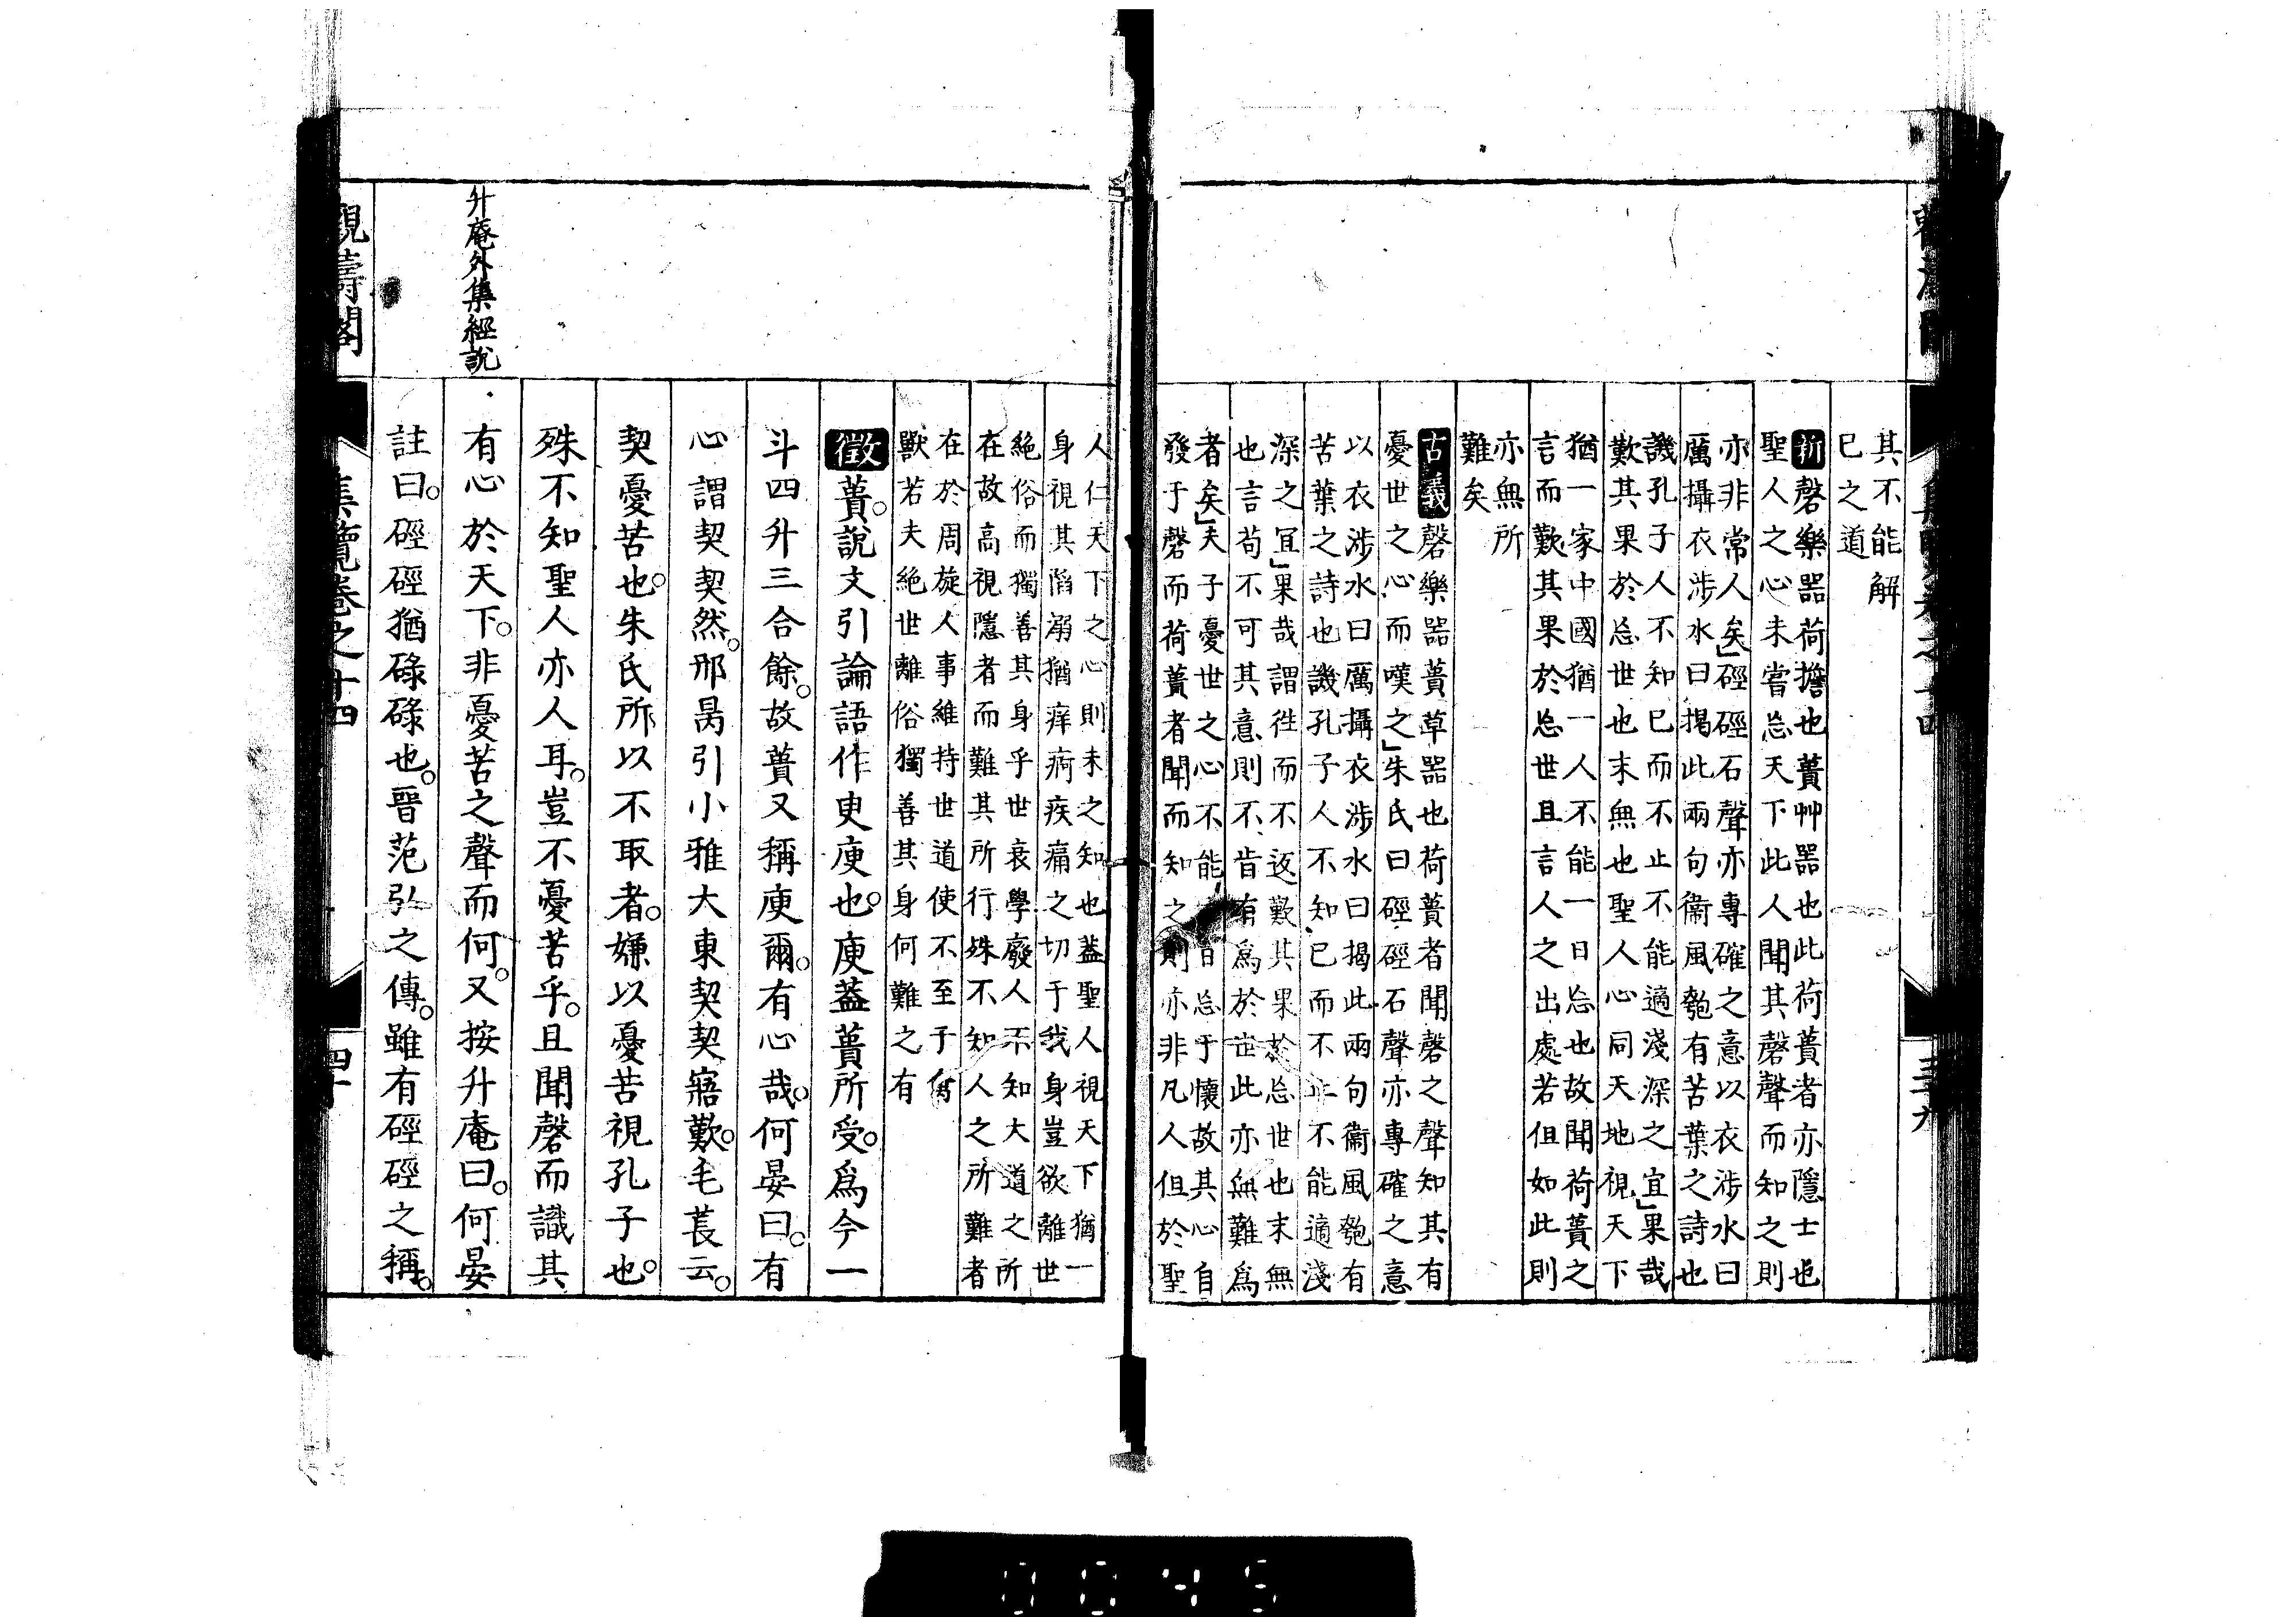 其不能解
已之道
新磬樂器荷擔也蕢艸器也此荷蕢者亦隱士也
聖人之心未嘗忘天下此人聞其磬聲而知之則
亦非常人矣」硜硜石聲亦專確之意以衣涉水曰
厲攝衣涉水曰揭此兩句衞風匏有苦葉之詩也
譏孔子人不知已而不止不能適淺深之宜」果哉
歎其果於忘世也末無也聖人心同天地視天下
猶一家中國猶一人不能一日忘也故聞荷蕢之
言而歎其果於忘世且言人之出處若但如此則
亦無所
難矣
古義磬樂器蕢草器也荷蕢者聞磬之聲知其有
憂世之心而嘆之」朱氏曰硜硜石聲亦專確之意
以衣涉水曰厲攝衣涉水曰揭此兩句衞風匏有
苦葉之詩也譏孔子人不知已而不止不能適淺
深之宜」果哉謂徃而不返歎其果於忘世也末無
也言苟不可其意則不肯有爲於世此亦無難爲
者矣」夫子憂世之心不能日忘于懷故其心自
發于磬而荷蕢者聞而知之則亦非凡人但於聖
人仁天下之心則未之知也蓋聖人視天下猶一
身視其陷溺猶痒痾疾痛之切于我身豈欲離世
絶俗而獨善其身乎世衰學廢人不知大道之所
在故高視隱者而難其所行殊不知人之所難者
在於周旋人事維持世道使不至于
獸若夫絶世離俗獨善其身何難之有
徵蕢。說文引論語作臾庾也。庾蓋蕢所受。爲今一
斗四升三合餘。故蕢又稱庾爾。有心哉。何晏曰。有
心謂契契然。邢昺引小雅大東契契寤歎。毛萇云。
契憂苦也。朱氏所以不取者。嫌以憂苦視孔子也。
殊不知聖人亦人耳。豈不憂苦乎。且聞磬而識其
有心於天下。非憂苦之聲而何。又按升庵曰。何晏
註曰。硜硜猶碌碌也。晉范弘之傳。雖有硜硜之稱。
升庵外集經說
觀濤閣
集覽卷之十四
四十
0045